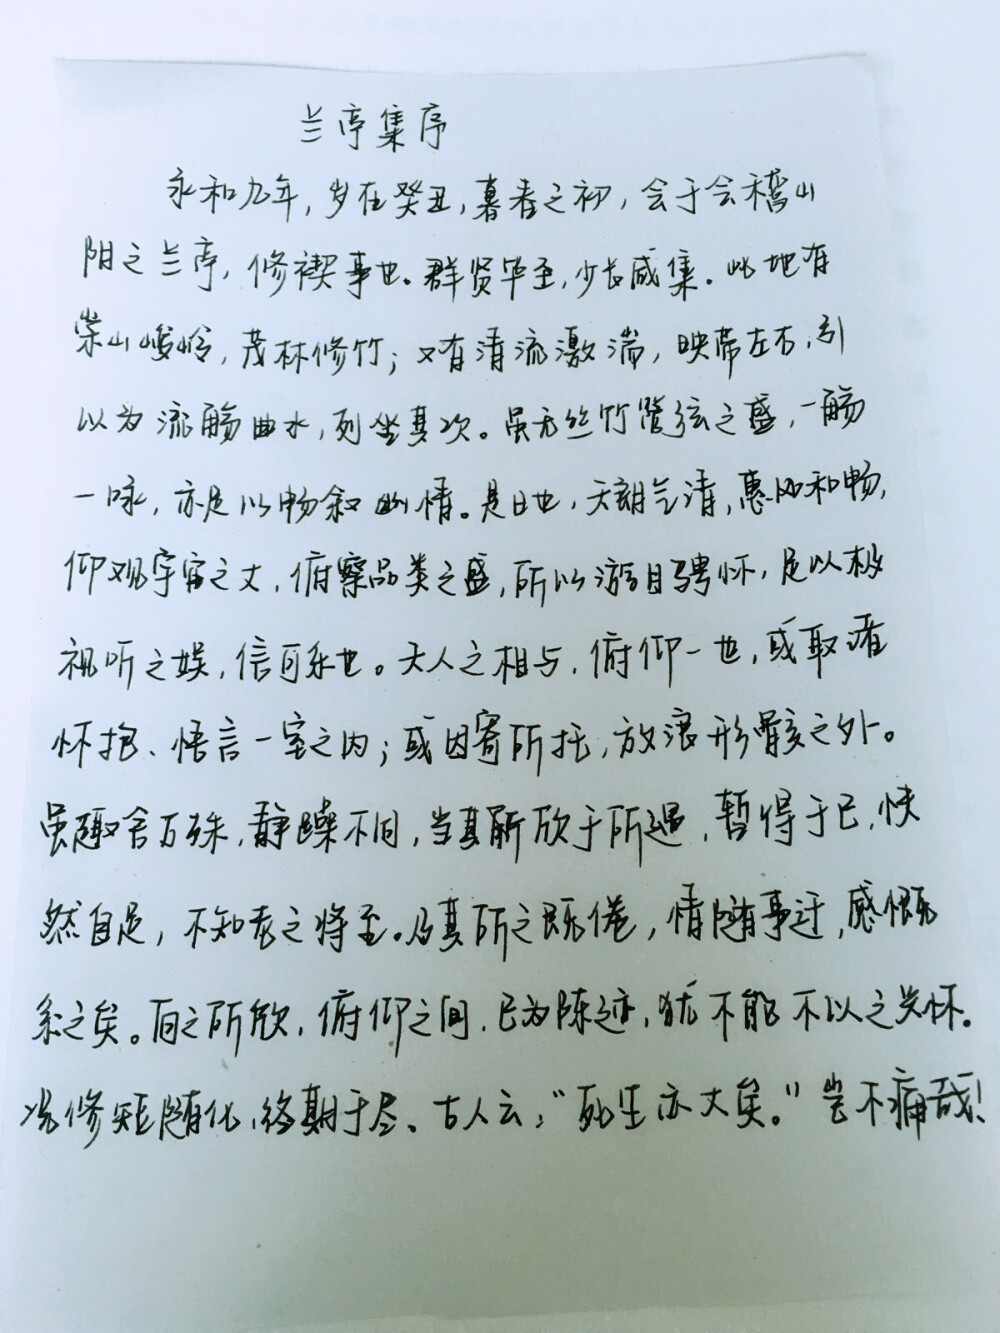 兰亭集序
永和九年,岁在癸丑,暮春之初,会于会稽山
阳之兰亭,修禊事也。群贤毕至,少长咸集。此地有
崇山峻岭,茂林修竹;又有清流激湍,映带左右,引
以为流觞曲水,列坐其次。虽无丝竹管弦之盛,一觞
一咏,亦足以畅叙幽情。是日也,天朗气清,惠风和畅,
仰观宇宙之大,俯察品类之盛,所以游目骋怀,足以极
视听之娱,信可乐也。夫人之相与,俯仰一世,或取诸
怀抱、悟言一室之内;或因寄所托,放浪形骸之外。
虽趣舍万殊,静躁不同,当其所欣于所遇,暂得于己,快
然自足,不知老之将至。及其所之既倦,情随事迁,感慨
系之矣。向之所欣,俯仰之间,已为陈迹,犹不能不以之兴怀。
况修短随化,终期于尽、古人云:"死生亦大矣。"岂不痛哉!